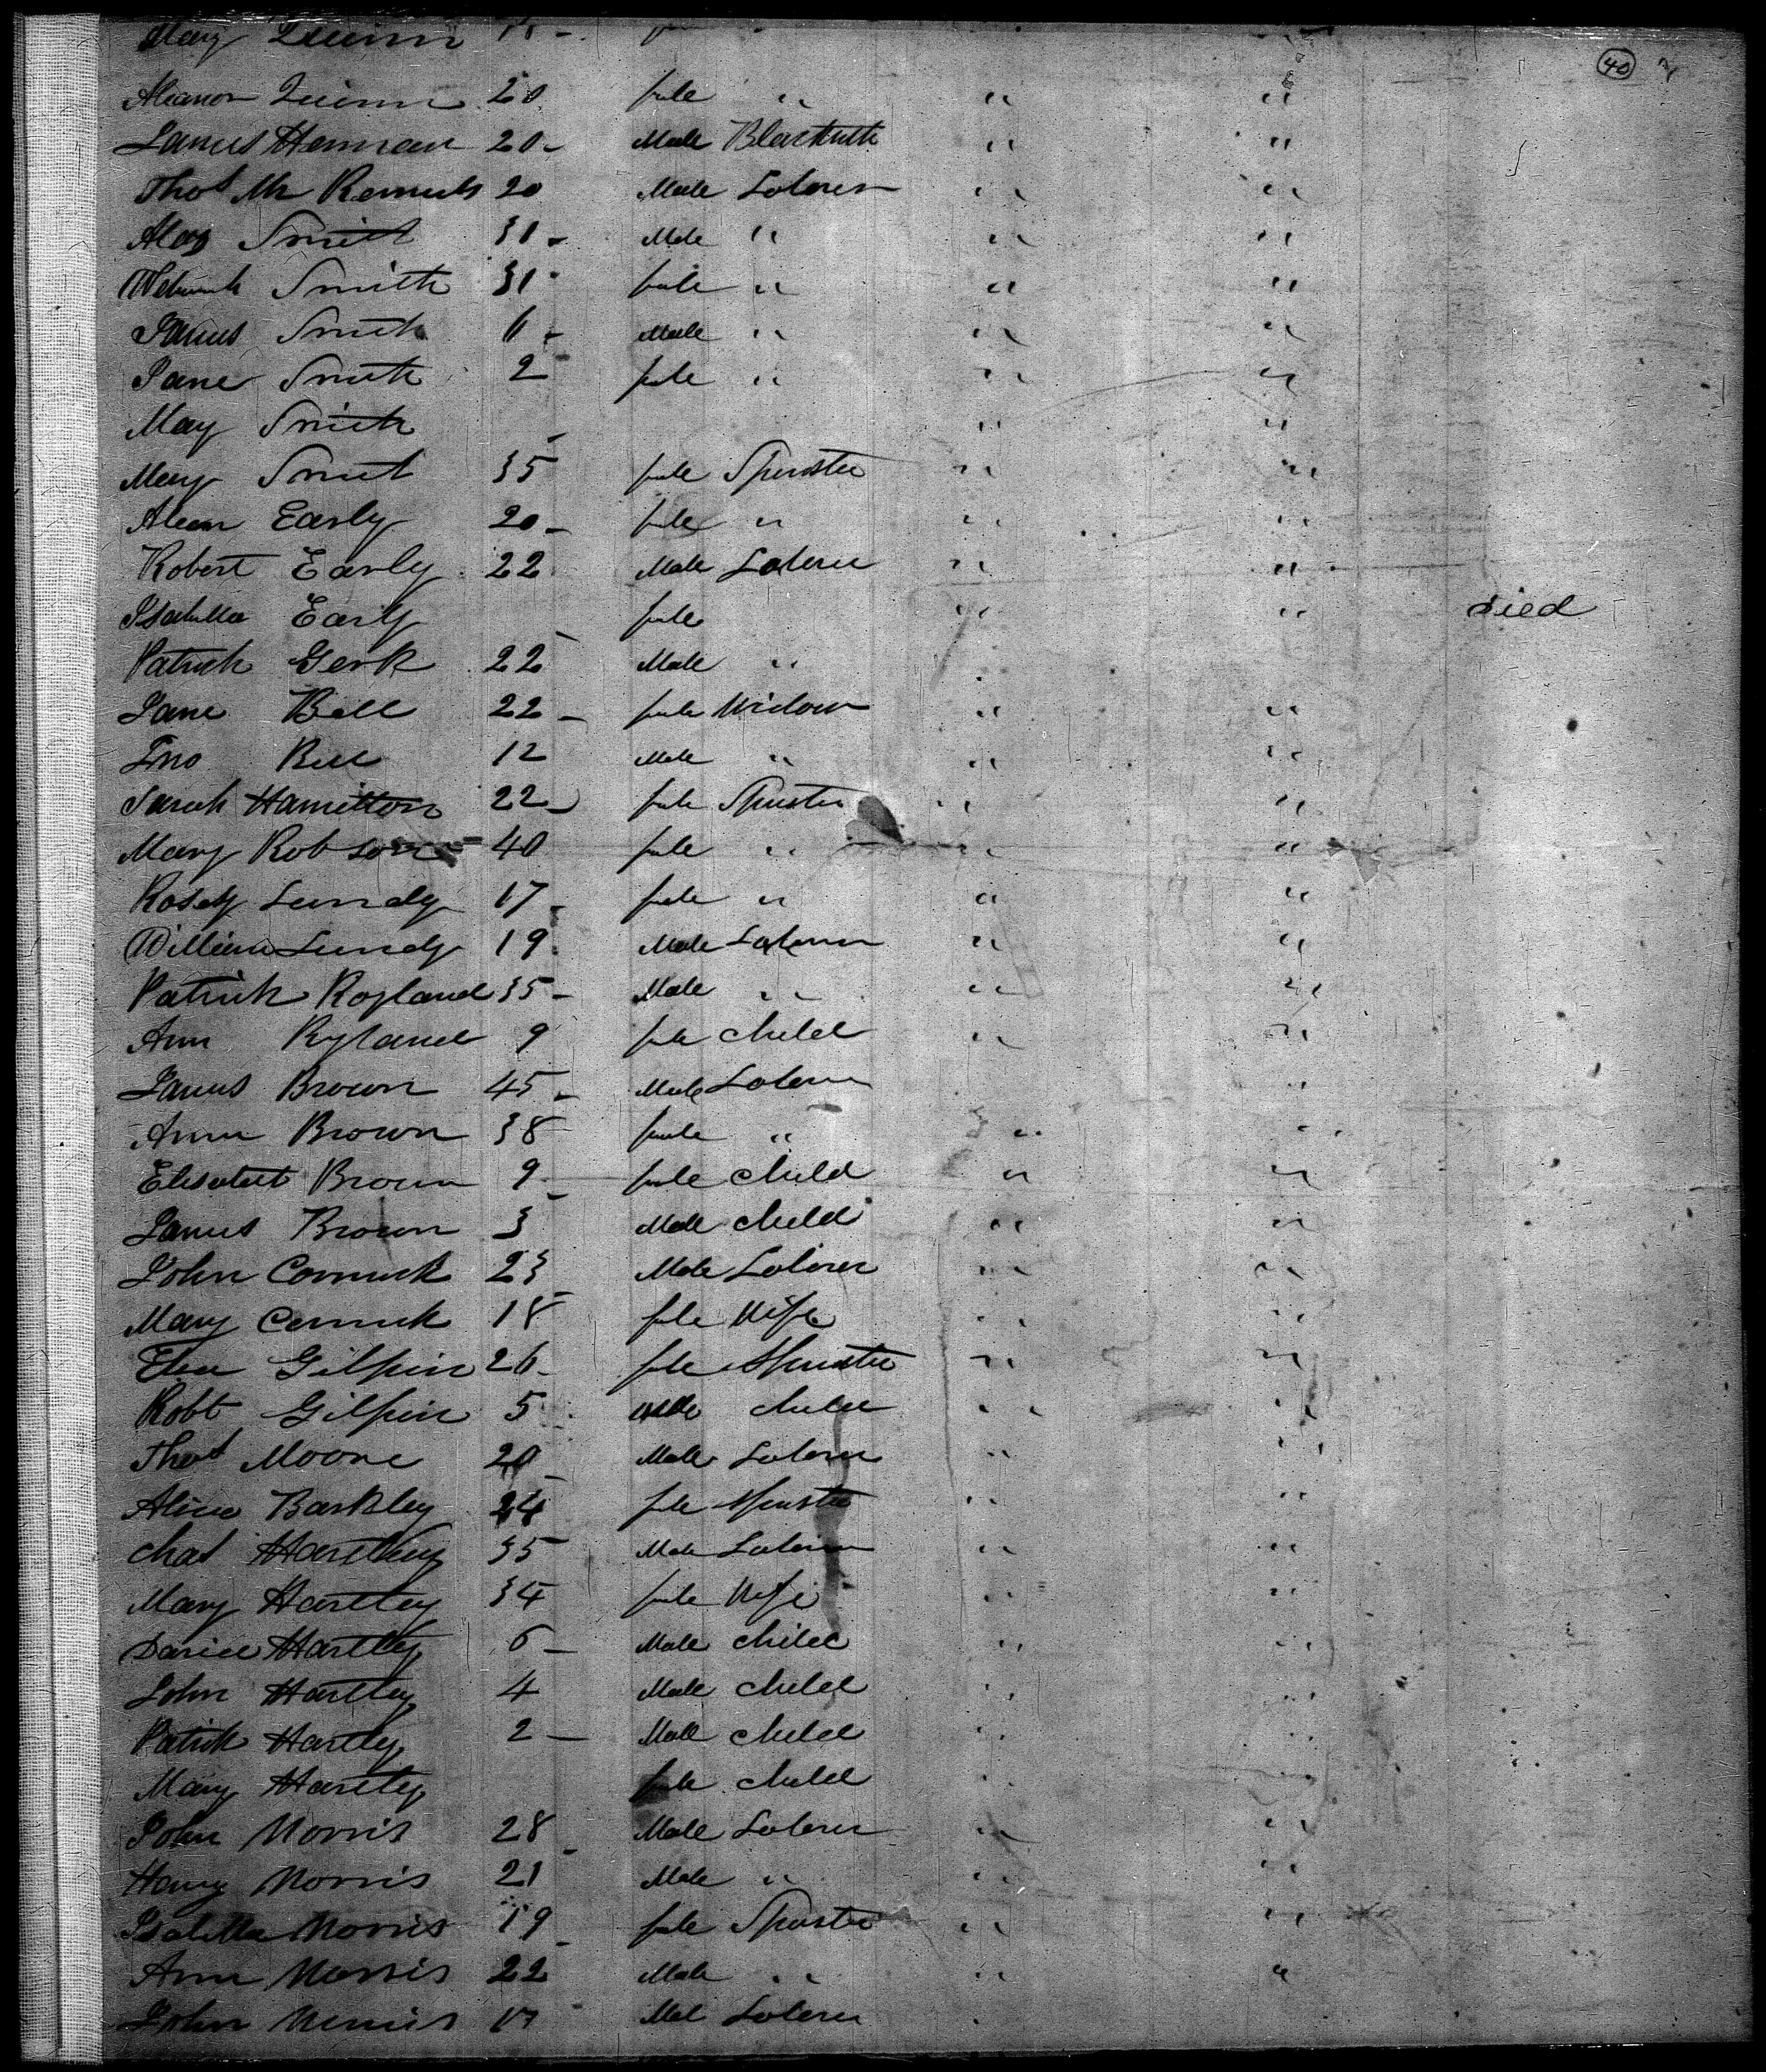 Mary Quinn 18 - 
40
Aleanor Quinn 20 fmle " " "
James Hernnan 20 - Male Blacksmith " "
Thos Mc 20 Male Laborer " "
Alex Smith 31 - Male " " "
Smith 31 fmle " " "
James Smith 6 - Male " " "
Jane Smith 2 fmle " " "
May Smith - " "
Mary Smit 35 fmle Spinster " "
Early 20 - fmle " " "
Robert Early 22 Male Laborer " "
Isabella Early fmle " " died
Patrick Gerk 22 Male "
Jane Bell 22 - fmle Widow " "
Jno Bell 12 Male " " "
Sarah Hamilton 22 - fmle Spinster " "
Mary Robson 40 fmle " " "
Rosey Lundy 17 - fmle " " "
William Lundy 19 Male Laborer " "
Patrick Royland 35 - Male " " "
Ann Ryland 9 fmle child " "
James Brown 45 - Male Laborer "
Ann Brown 38 fmle " " "
Elisabet Brown 9 fmle child " "
James Brown 3 Male child " "
John Cormick 23 Male Laborer " "
Mary Cormick 18 fmle Wife " "
Gilpin 26 - fmle Spinster " "
Robt Gilpin 5 Male child " "
Thos Moore 20 Male Laborer " "
Alice Barkley 24 fmle Spinster " "
Chas Hartley 35 Male Laborer " "
Mary Hartley 34 fmle Wife " "
Daniel Hartley 6 - Male child " "
John Hartley 4 Male child " "
Patrick Hartley 2 - Male child " "
Mary Hartley fmle child "
John Morris 28 Male Laborer " "
Henry Morris 21 Male " " "
Isabella Morris 19 fmle Spinster " "
Ann Morris 22 Male " " "
John 17 Mal Laborer